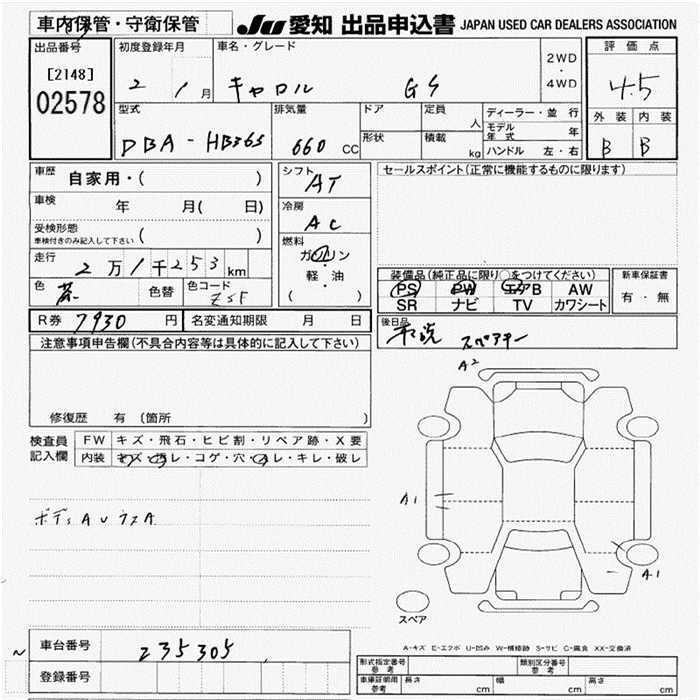 車内保管・守衛保管
JU 愛知 出品申込書 JAPAN USED CAR DEALERS ASSOCIATION
出品番号 初度登録年月 車名・グレード 評価点
[2148] 2 1月 キャロル GS 2WD・4WD 4.5
02578
型式 排気量 ドア 定員 人 ディーラー・並行 外装 内装
DBA-HB36S 660 CC 形状 積載 kg モデル年式 年 B B
ハンドル 左・右
車歴 自家用・( ) シフト AT セールスポイント(正常に機能するものに限ります)
車検 年 月( 日) 冷房 AC
受検形態 ( )
車検付きのみ記入して下さい
燃料 ガソリン・軽・油 ( )
走行 2万1千253km
装備品(純正品に限り○をつけてください) 新車保証書
色 色替 色コード ZSF
PS PW エアB AW 有・無
SR ナビ TV カワシート
R券 7930円 名変通知期限 月 日
後日品 スペアキー
注意事項申告欄(不具合内容等は具体的に記入して下さい)
修復歴 有 (箇所 )
検査員記入欄 FW キズ・飛石・ヒビ割・リペア跡・X要
内装 キズ・汚レ・コゲ・穴・スレ・キレ・破レ
A2
A1
A1
スペア
A-キズ E-エクボ U-凹み W-補修跡 S-サビ C-腐食 XX-交換済
車台番号 235305
登録番号
形式指定番号 参考 類別区分番号 参考
車庫証明用 参考 長さ cm 幅 cm 高さ cm